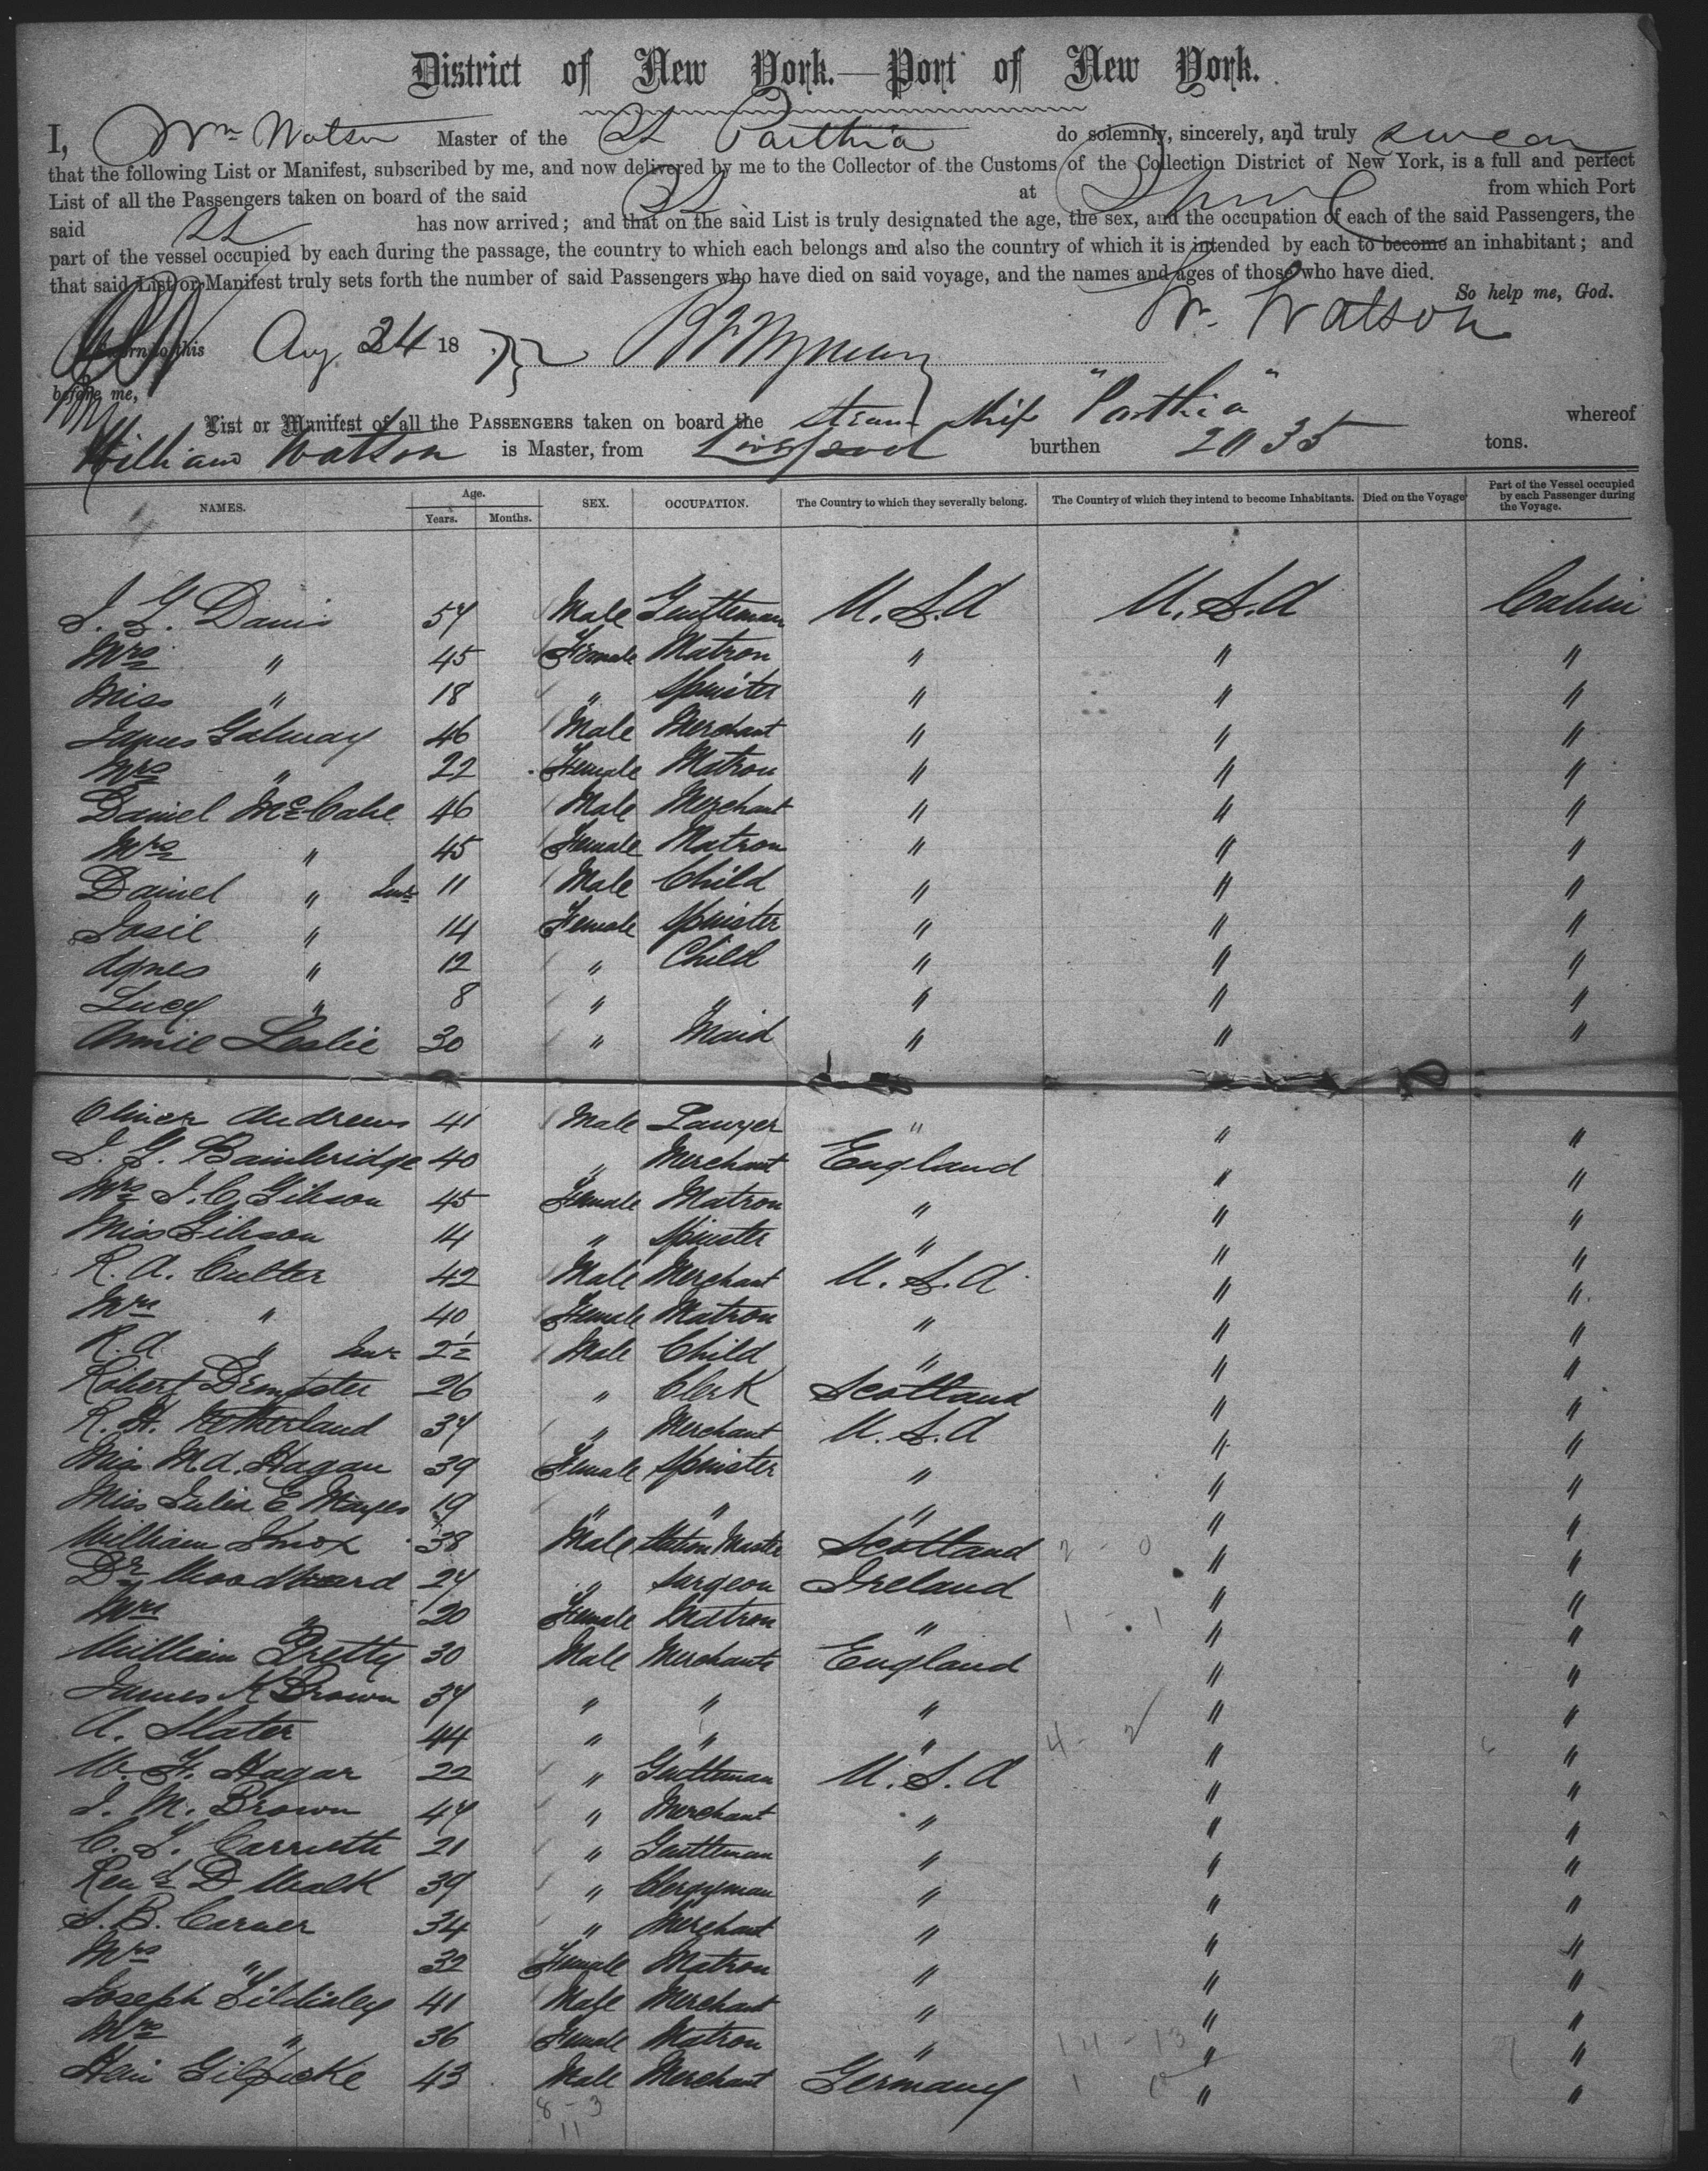 District of New York.—Port of New York.
I, Wm Watson Master of the SS Parthia do solemnly, sincerely, and truly swear
that the following List or Manifest, subscribed by me, and now delivered by me to the Collector of the Customs of the Collection District of New York, is a full and perfect
List of all the Passengers taken on board of the said SS at L'pool from which Port
said SS has now arrived; and that on the said List is truly designated the age, the sex, and the occupation of each of the said Passengers, the
part of the vessel occupied by each during the passage, the country to which each belongs and also the country of which it is intended by each to become an inhabitant; and
that said List or Manifest truly sets forth the number of said Passengers who have died on said voyage, and the names and ages of those who have died.
So help me, God.
Wm. Watson
Sworn to this Aug 24 18
before me,
List or Manifest of all the PASSENGERS taken on board the steam ship "Parthia" whereof
William Watson is Master, from Liverpool burthen 2035 tons.
NAMES. Age. Years. Months. SEX. OCCUPATION. The Country to which they severally belong. The Country of which they intend to become Inhabitants. Died on the Voyage Part of the Vessel occupied by each Passenger during the Voyage.
J. G. Davis 54 Male Gentleman U.S.A U.S.A Cabin
Mrs " 45 Female Matron " " "
Miss " 18 " Spinster " " "
James Galway 46 Male Merchant " " "
Mrs " 22 Female Matron " " "
Daniel McCabe 46 Male Merchant " " "
Mrs " 45 Female Matron " " "
Daniel " Junr 11 Male Child " " "
Josie " 14 Female Spinster " " "
Agnes " 12 " Child " " "
Lucy " 8 " " " " "
Annie Leslie 30 " Maid " " "
Oliver Andrews 41 Male Lawyer " " "
J. G. Bainbridge 40 " Merchant England " "
Mrs J. C. Gibson 45 Female Matron " " "
Miss Gibson 14 " Spinster " " "
R. A. Cutter 42 Male Merchant U.S.A " "
Mrs " 40 Female Matron " " "
R. A. " Junr 2½ Male Child " " "
Robert Dempster 26 " Clerk Scotland " "
R. H. 34 " Merchant U.S.A " "
Miss M. A. Hagan 39 Female Spinster " " "
Miss Julia E Mayes 19 " " " " "
William Knox 38 Male Station Master Scotland " "
Dr Woodward 24 " Surgeon Ireland " "
Mrs " 20 Female Matron " " "
William Pretty 30 Male Merchants England " "
James K Brown 34 " " " " "
A. Slater 44 " " " " "
W. H. Hagar 22 " Gentleman U.S.A " "
J. M. Brown 44 " Merchant " " "
C. L. Carruth 21 " Gentleman " " "
Revd D Walk 39 " Clergyman " " "
S. B. Carner 34 " Merchant " " "
Mrs " 32 Female Matron " " "
Joseph Tildisley 41 Male Merchant " " "
Mrs " 36 Female Matron " " "
43 Male Merchant Germany " "
8 - 3
11